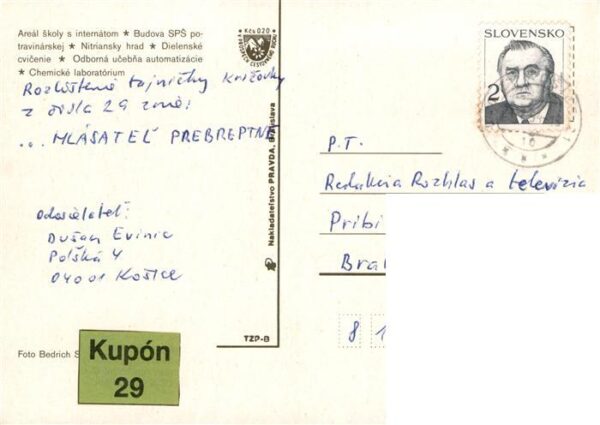 Areál školy s internátom ★ Budova SPŠ po-
travinárskej ★ Nitriansky hrad ★ Dielenské
cvičenie ★ Odborná učebňa automatizácie
★ Chemické laboratórium
Kčs 020
Rozlúštenie tajničky krížovky
z čísla 29 znie:
... HLÁSATEĽ PREBREPTNE
Odosielateľ:
Dušan Evinic
Polská 4
04001 Košice
Foto Bedrich
Kupón
29
Nakladateľstvo PRAVDA, Bratislava
TZP-B
SLOVENSKO
2
P.T.
Redakcia Rozhlas a televízia
Pribi
Bra
8 1